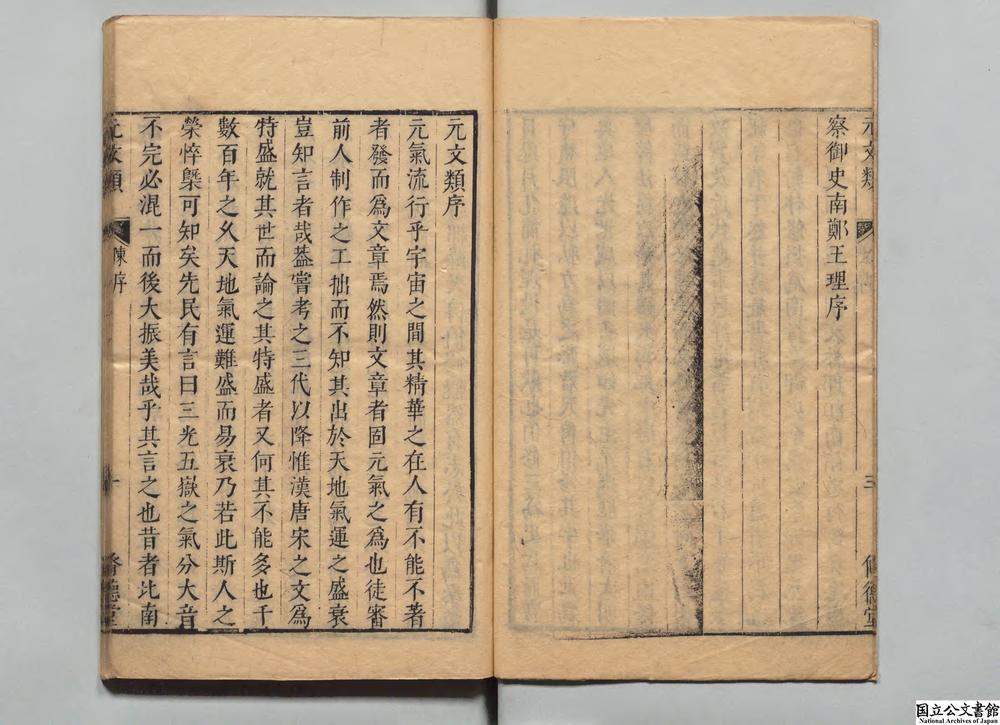 元文類
三
脩德堂
察御史南鄭王理序
元文類序
元氣流行乎宇宙之間其精華之在人有不能不著
者發而爲文章焉然則文章者固元氣之爲也徒審
前人制作之工拙而不知其出於天地氣運之盛衰
豈知言者哉葢嘗考之三代以降惟漢唐宋之文爲
特盛就其世而論之其特盛者又何其不能多也千
數百年之久天地氣運難盛而易衰乃若此斯人之
榮悴槩可知矣先民有言曰三光五嶽之氣分大音
不完必混一而後大振美哉乎其言之也昔者北南
元文類
陳序
一
脩德堂
国立公文書館
National Archives of Japan